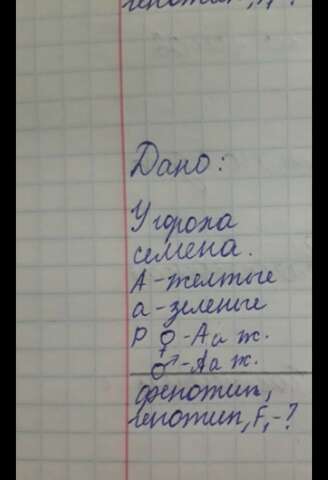 генотип, F₁ ?
Дано:
У гороха
семена.
А - желтые
а - зеленые
Р ♀ - Аа ж.
♂ - Аа ж.
фенотип,
генотип, F₁ - ?